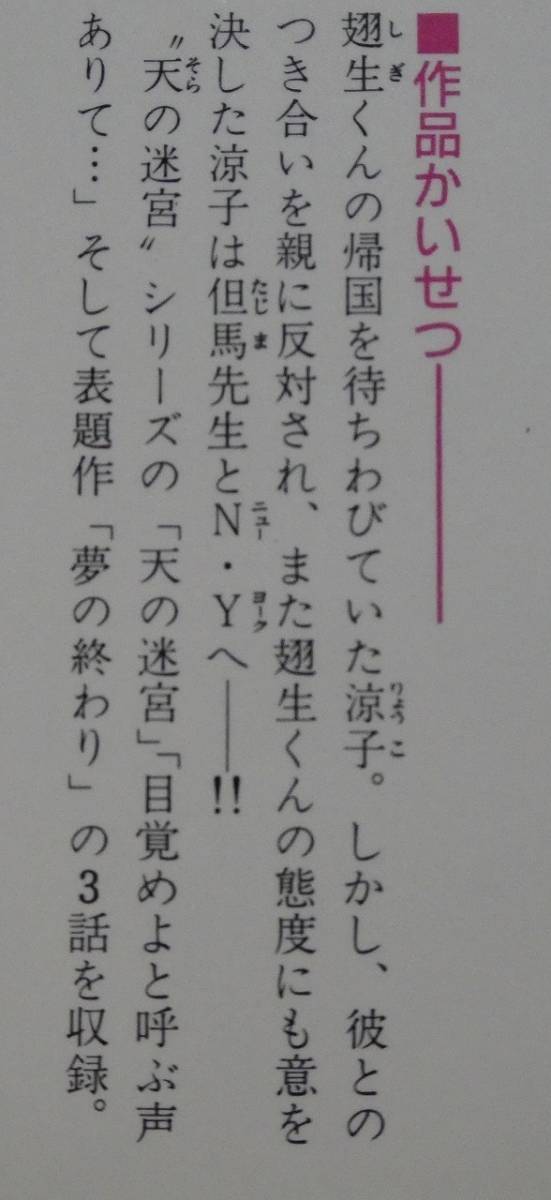 ■作品かいせつ――――
翅生くんの帰国を待ちわびていた涼子。しかし、彼との
つき合いを親に反対され、また翅生くんの態度にも意を
決した涼子は但馬先生とN・Yへ――!!
〝天の迷宮〟シリーズの「天の迷宮」「目覚めよと呼ぶ声
ありて…」そして表題作「夢の終わり」の3話を収録。